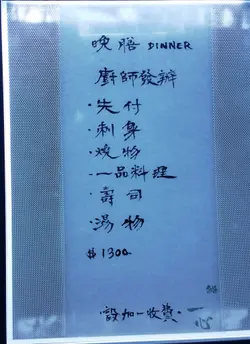 晚膳 DINNER
廚師發辦
·先付
·刺身
·燒物
·一品料理
·壽司
·湯物
$1300
設加一收費.